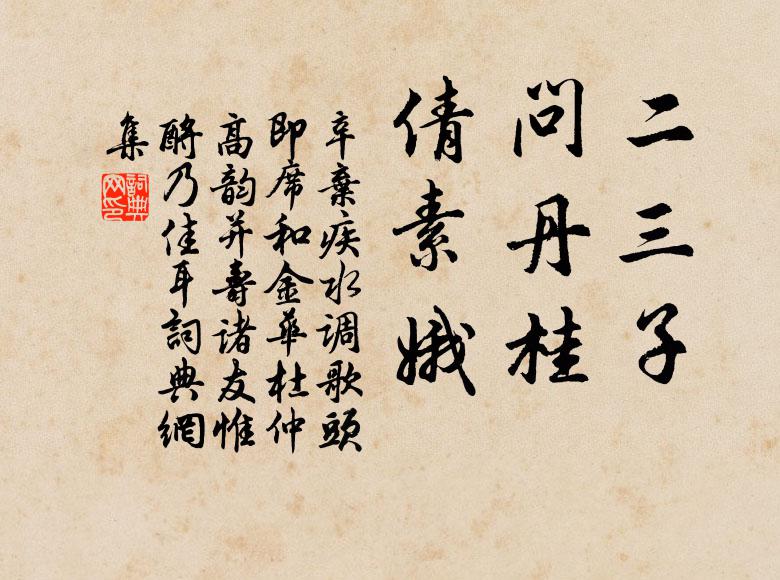 二三子
問丹桂
倩素娥
辛棄疾水调歌頭
即席和金華杜仲
高韵并壽诸友惟
酹乃佳耳詞典網
集
詞典網印